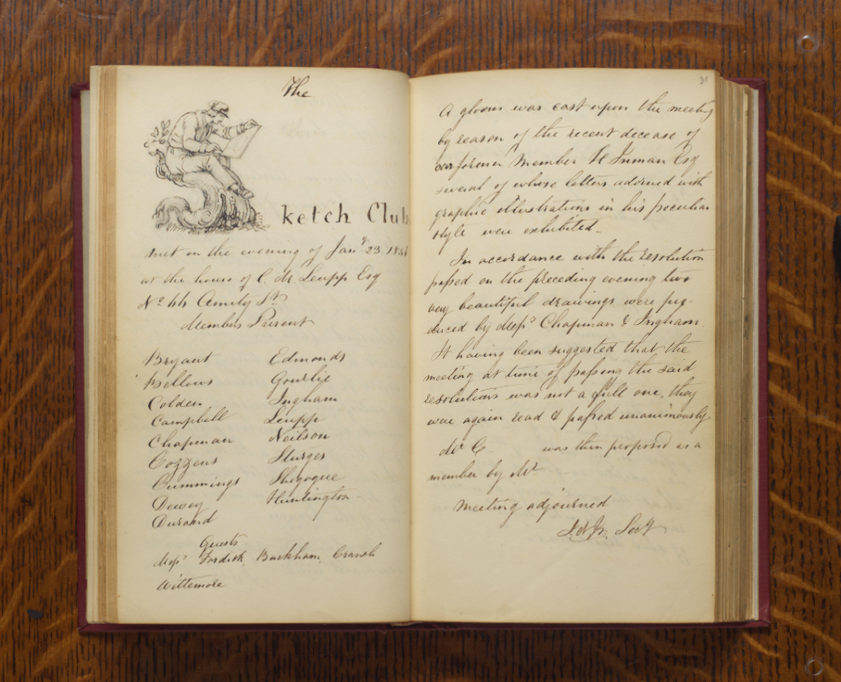 The
ketch Club
met on the evening of Jany 23. 1846
at the house of C. M. Leupp Esq
No 66 Amity St
Members Present
Bryant Edmonds
Bellows Gourlie
Colden Ingham
Campbell Leupp
Chapman Neilson
Cozzens Sturges
Cummings Shegogue
Dewey Huntington
Durand
Guests
Messrs Fosdick, Buckham, Cranch
Wittemore
31
A gloom was cast upon the meeting
by reason of the recent decease of
our former Member H Inman Esq
several of whose letters adorned with
graphic illustrations in his peculiar
style were exhibited_
In accordance with the resolution
passed on the preceding evening two
very beautiful drawings were pro-
duced by Messrs Chapman & Ingham
It having been suggested that the
meeting at time of passing the said
resolutions was not a full one, they
were again read & passed unanimously
Mr C was then proposed as a
member by Mr
Meeting adjourned
Secy